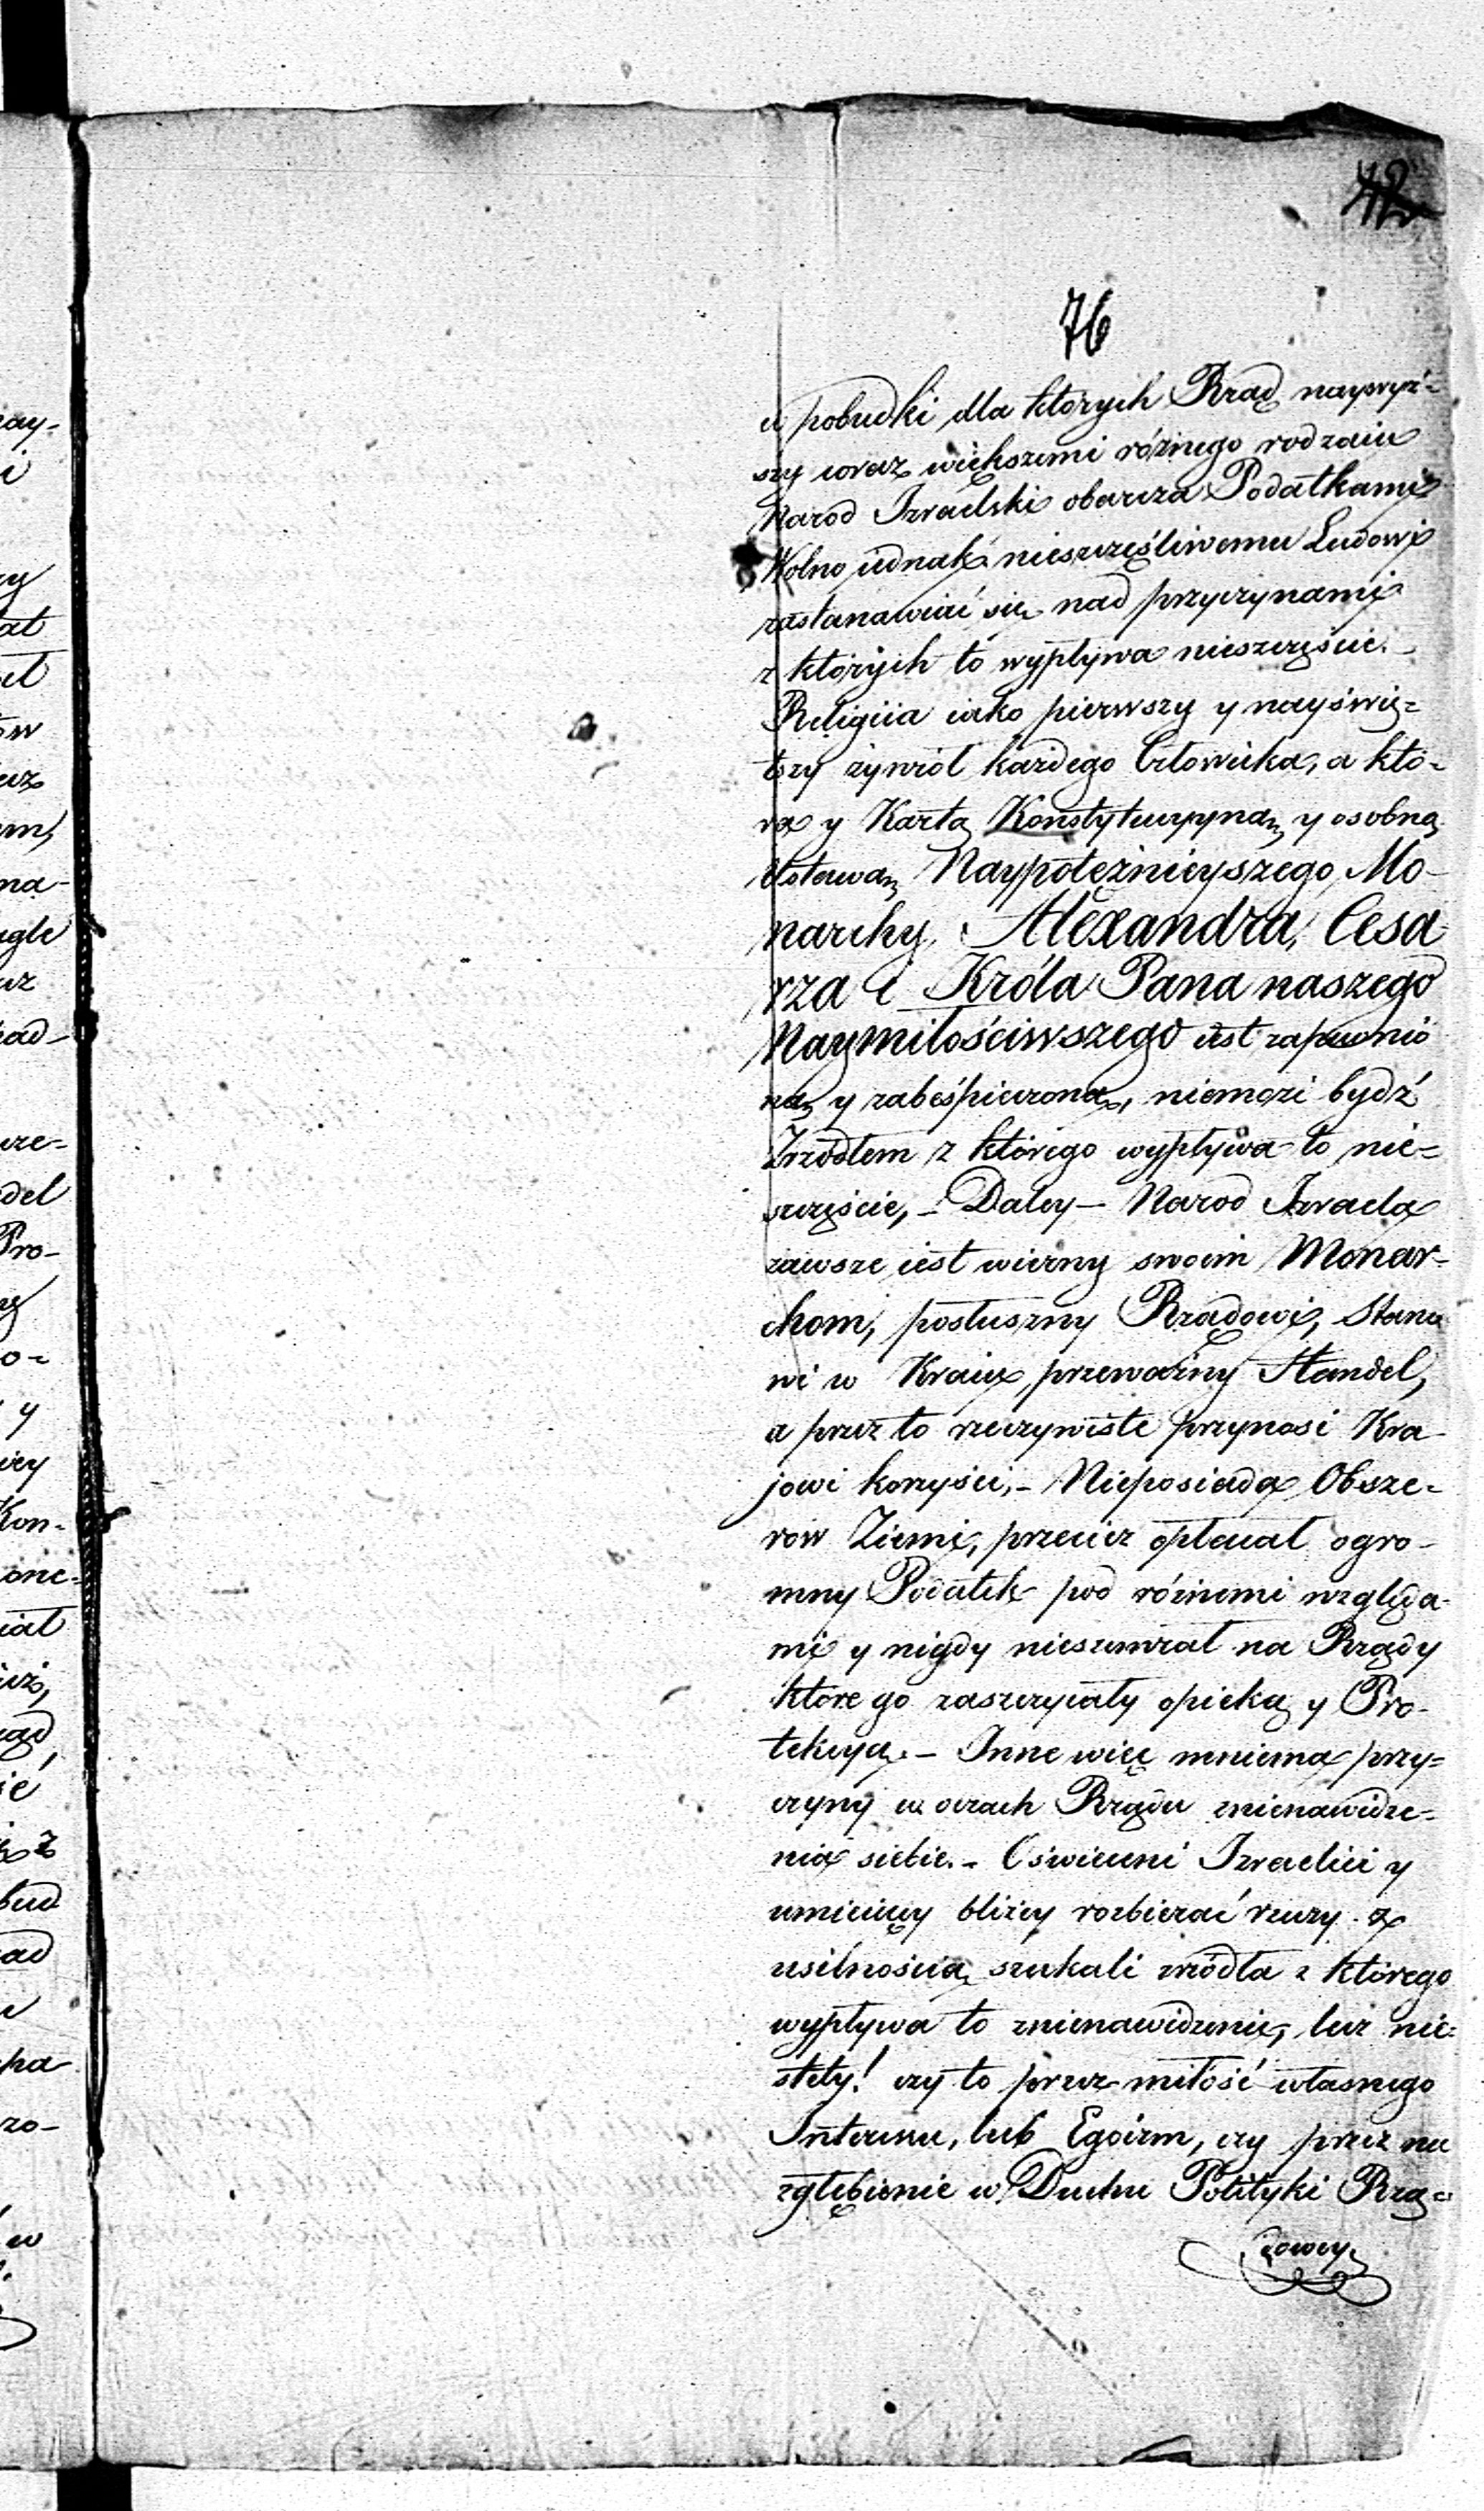 42
76
a pobudki dla których Rząd naywyż-
szy coraz większemi różnego rodzaiu
Narod Izraelski obarcza Podatkami
Wolno iednak nieszczęśliwemu Ludowi
zastanawiać się nad przyczynami
z których to wypływa nieszczęście.-
Religiia iako pierwszy y nayświę-
tszy żywiół każdego Człowieka, a któ-
ra y Kartą Konstytucyyną y osobną
Ustawą Naypotężnieyszego Mo-
narchy Alexandra, Cesa
rza i Króla Pana naszego
Naymiłościwszego iest zapewnio
ną y zabeśpieczoną, niemoże bydź
Źrzodłem z którego wypływa to nie-
szczęście, - Daley - Narod Izraela
zawsze iest wierny swoim Monar-
chom, posłuszny Rządowi, Stano
wi w Kraiu przeważny Handel,
a przez to rzeczywiste przynosi Kra
jowi korzyści, - Nieposiada Obsze-
row Ziemi, przecież opłacał ogro-
mny Podatek pod różnemi względa-
mi y nigdy nieszemrał na Rządy
które go zaszczycały opieką y Pro-
tekcyą. - Inne więc mniema przy-
czyny w oczach Rządu znienawidze-
nia siebie. - Oświeceni Izraelici y
umieiący bliżey rozbierać rzeczy z
usilnością szukali zródła z którego
wypływa to znienawidzenie, lecz nie-
stety! czy to przez miłość własnego
Interessu, lub Egoizm, czy przez nie
zgłębienie w Duchu Polityki Rzą-
dowey